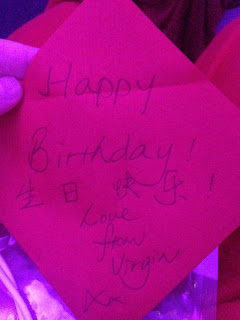 Happy
Birthday!
生日快乐!
Love
from
Virgin
xxx